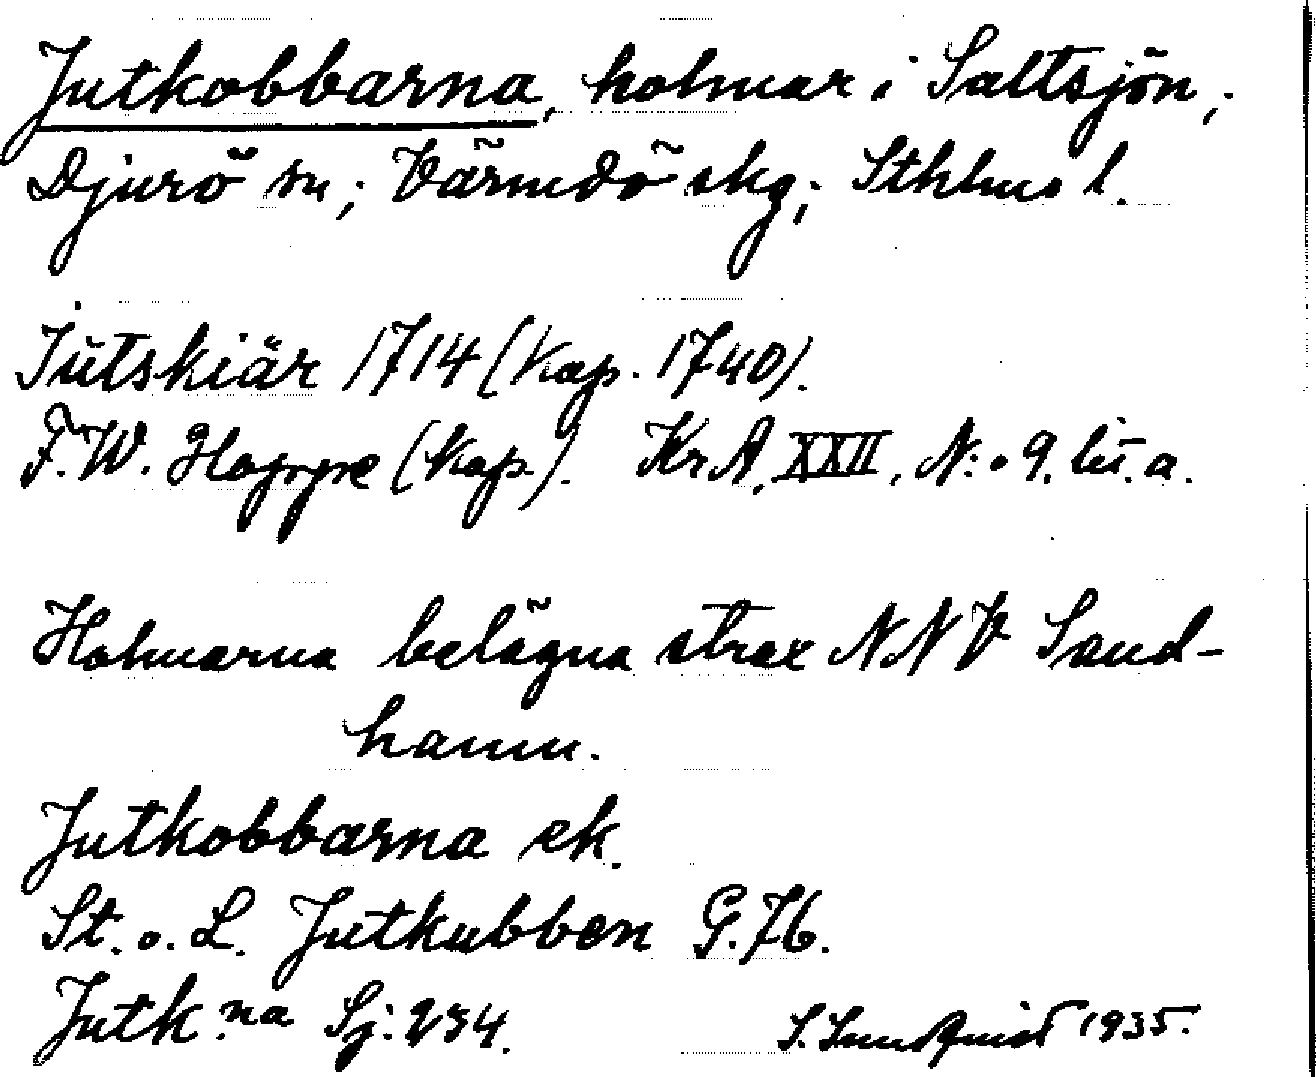 Jutkobbarna, holmar i Saltsjön,
Djurö sn; Värmdö skg; Sthlms l.
Jutskiär 1714 (kop. 1740).
F.W. Hoppe (kop.). KrA, XXII, N:o 9. lit. a.
Holmarna belägna strax NNV Sand-
hamn.
Jutkobbarna ek.
St. o. L. Jutkubben G.76.
Jutk:na Sj: 234.
S. Lundquist 1935.